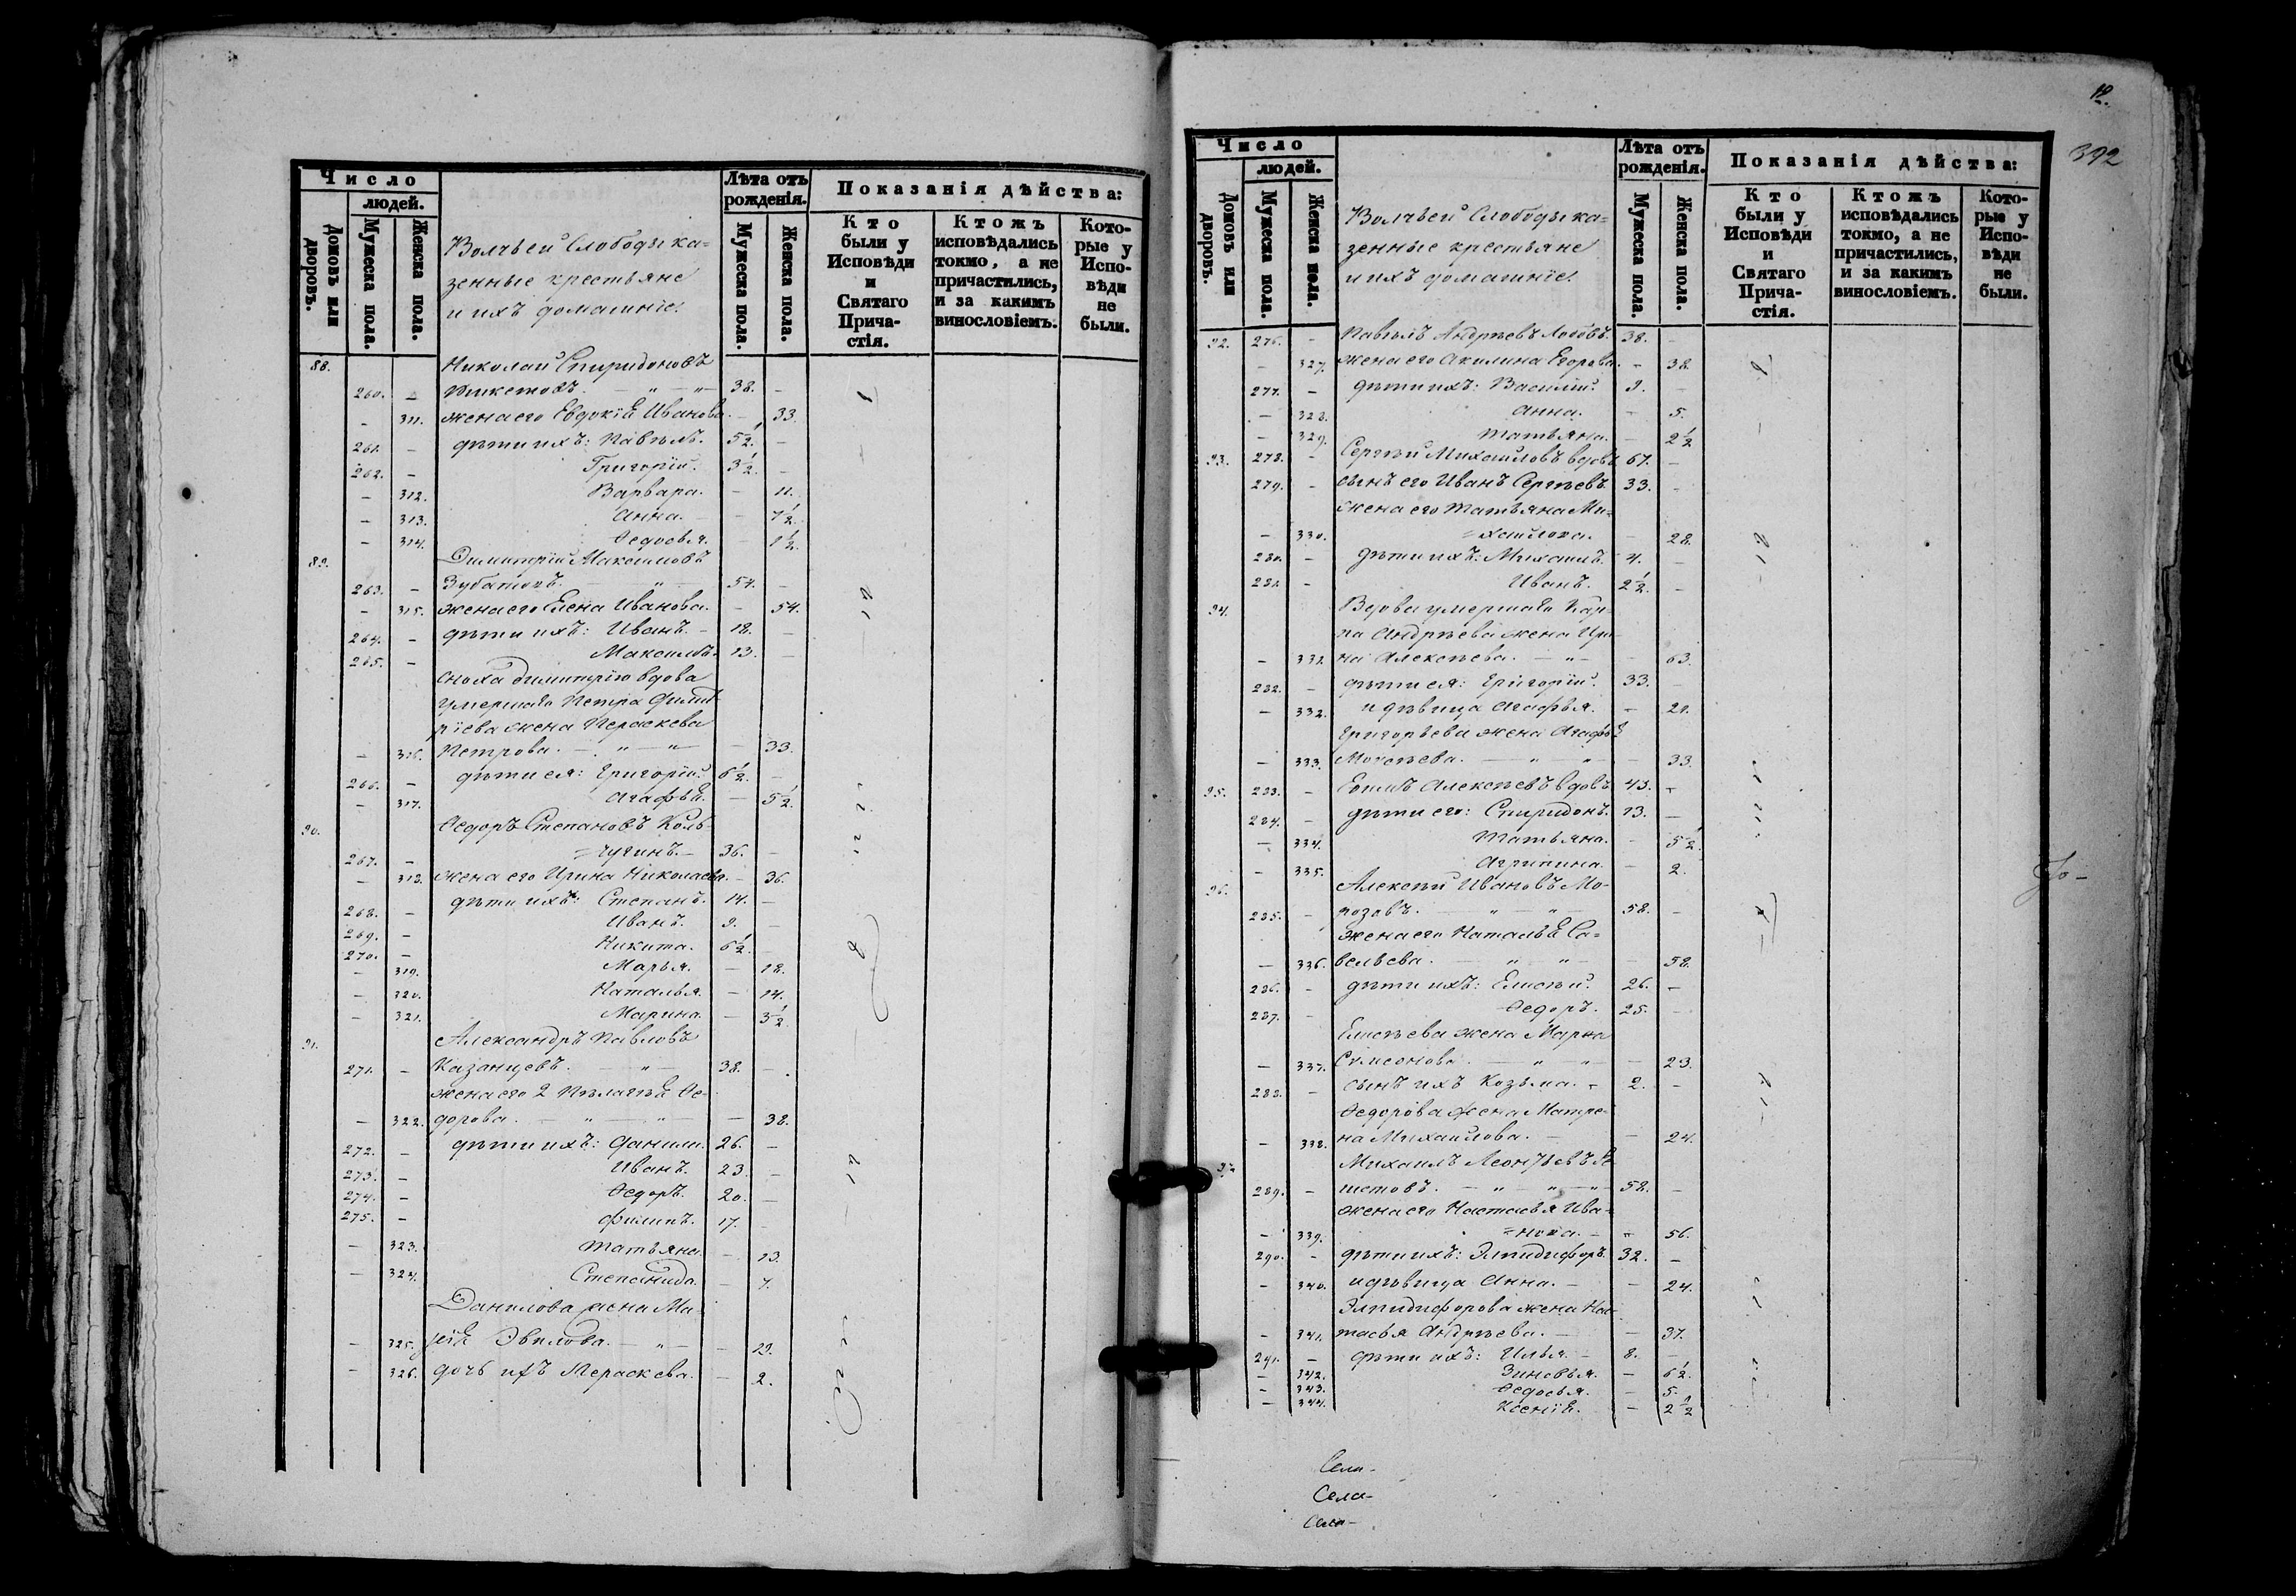 Число
людей.
Домовъ или дворовъ.
Мужеска пола.
Женска пола.
Волчьей Слободы ка=
зенные крестьяне
и ихъ домашніе.
Лѣта отъ рожденія.
Мужеска пола.
Женска пола.
Показанія дѣйства:
Кто были у Исповѣди и Святаго Прича-стія.
Ктожъ исповѣдались токмо, а не причастились, и за какимъ винословіемъ.
Кото-рые у Испо-вѣди не были.
88. Николай Спиридоновъ
260. - 38. -
- 311. жена его Евдокія Иванова. - 33.
261. - дѣти ихъ: Павелъ. 5½. -
262. - Григорій. 3½. -
- 312. Варвара. - 11.
- 313. Анна. - 7½.
- 314. Ѳедосья. - 1½.
89. Димитрій Максимовъ
263. - Зубатовъ. 54. -
- 315. жена его Елена Иванова. - 54.
264. - дѣти ихъ: Иванъ. 18. -
265. - Максимъ. 13. -
Сноха Димитрію вдова
умершаго Петра Димит-
ріева жена Пераскева
- 316. Петрова. - 33.
266. - дѣти ея: Григорій. 6½. -
- 317. Агафья. - 5½.
90. Ѳедоръ Степановъ Коль-
267. - =чугинъ. 36. -
- 318. жена его Ирина Николаева. - 36.
268. - дѣти ихъ: Степанъ. 14. -
269. - Иванъ. 9. -
270. - Никита. 6½. -
- 319. Марья. - 18.
- 320. Наталья. - 14.
- 321. Марина. - 3½.
91. Александръ Павловъ
271. - Казанцевъ. 38. -
жена его 2 Пелагѣя Ѳе-
- 322. дорова. - 38.
272. - дѣти ихъ: Данилъ. 26. -
273. - Иванъ. 23. -
274. - Ѳедоръ. 20. -
275. - Филипъ. 17. -
- 323. Татьяна. - 13.
- 324. Степанида. - 7.
Данилова жена Ма-
- 325. рія - 29.
- 326. дочь ихъ Пераскева. - 2.
12.
392
Число
людей.
Домовъ или дворовъ.
Мужеска пола.
Женска пола.
Волчьей Слободы ка=
зенные крестьяне
и ихъ домашніе.
Лѣта отъ рожденія.
Мужеска пола.
Женска пола.
Показанія дѣйства:
Кто были у Исповѣди и Святаго Прича-стія.
Ктожъ исповѣдались токмо, а не причастились, и за какимъ винословіемъ.
Кото-рые у Испо-вѣди не были.
92. 276. - Павелъ Андреевъ 38. -
- 327. жена его Акилина Егорова. - 38.
277. - дѣти ихъ: Василій. 9. -
- 328. Анна. - 5.
- 329. Татьяна. - 2½
93. 278. - Сергѣй Михайловъ вдовъ 61. -
279. - сынъ его Иванъ Сергѣевъ. 33. -
жена его Татьяна Ми=
- 330. =хайлова. - 28.
280. - дѣти ихъ: Михаилъ. 4. -
281. - Иванъ. 2½. -
94. Вдова умершаго Кар-
па Андреева жена Ири-
- 331. на Алексѣева. - 63.
282. - дѣти ея: Григорій. 33. -
- 332. и дѣвица Агафья. - 21.
Григорьева жена Агафья
- 333. Мокеева. - 33.
95. 283. - Ефимъ Алексѣевъ вдовъ 43. -
284. - дѣти его: Спиридонъ. 13. -
- 334. Татьяна. - 5½.
- 335. Агрипина. - 2.
96. Алексѣй Ивановъ Мо-
285. - розовъ. 58. -
жена его Наталья Са=
- 336. вельева. - 58.
286. - дѣти ихъ: Елисѣй. 26. -
287. - Ѳедоръ. 25. -
Елисѣева жена Марѳа
- 337. Симеонова. - 23.
288. - сынъ ихъ Козьма. 2. -
Ѳедорова жена Матре-
- 338. на Михайлова. - 24.
97. Михаилъ Леонтьевъ
289. - 58. -
жена его Настасья Ива-
- 339. =нова. - 56.
290. - дѣти ихъ: Элпидифоръ. 32. -
- 340. и дѣвица Анна. - 24.
Элпидифорова жена Нас-
- 341. тасья Андреева. - 37.
291. - дѣти ихъ: Илья. 8. -
- 342. Зиновья. - 6½.
- 343. Ѳедосья. - 5.
- 344. Ксенія. - 2½
Села-
Села-
Села-